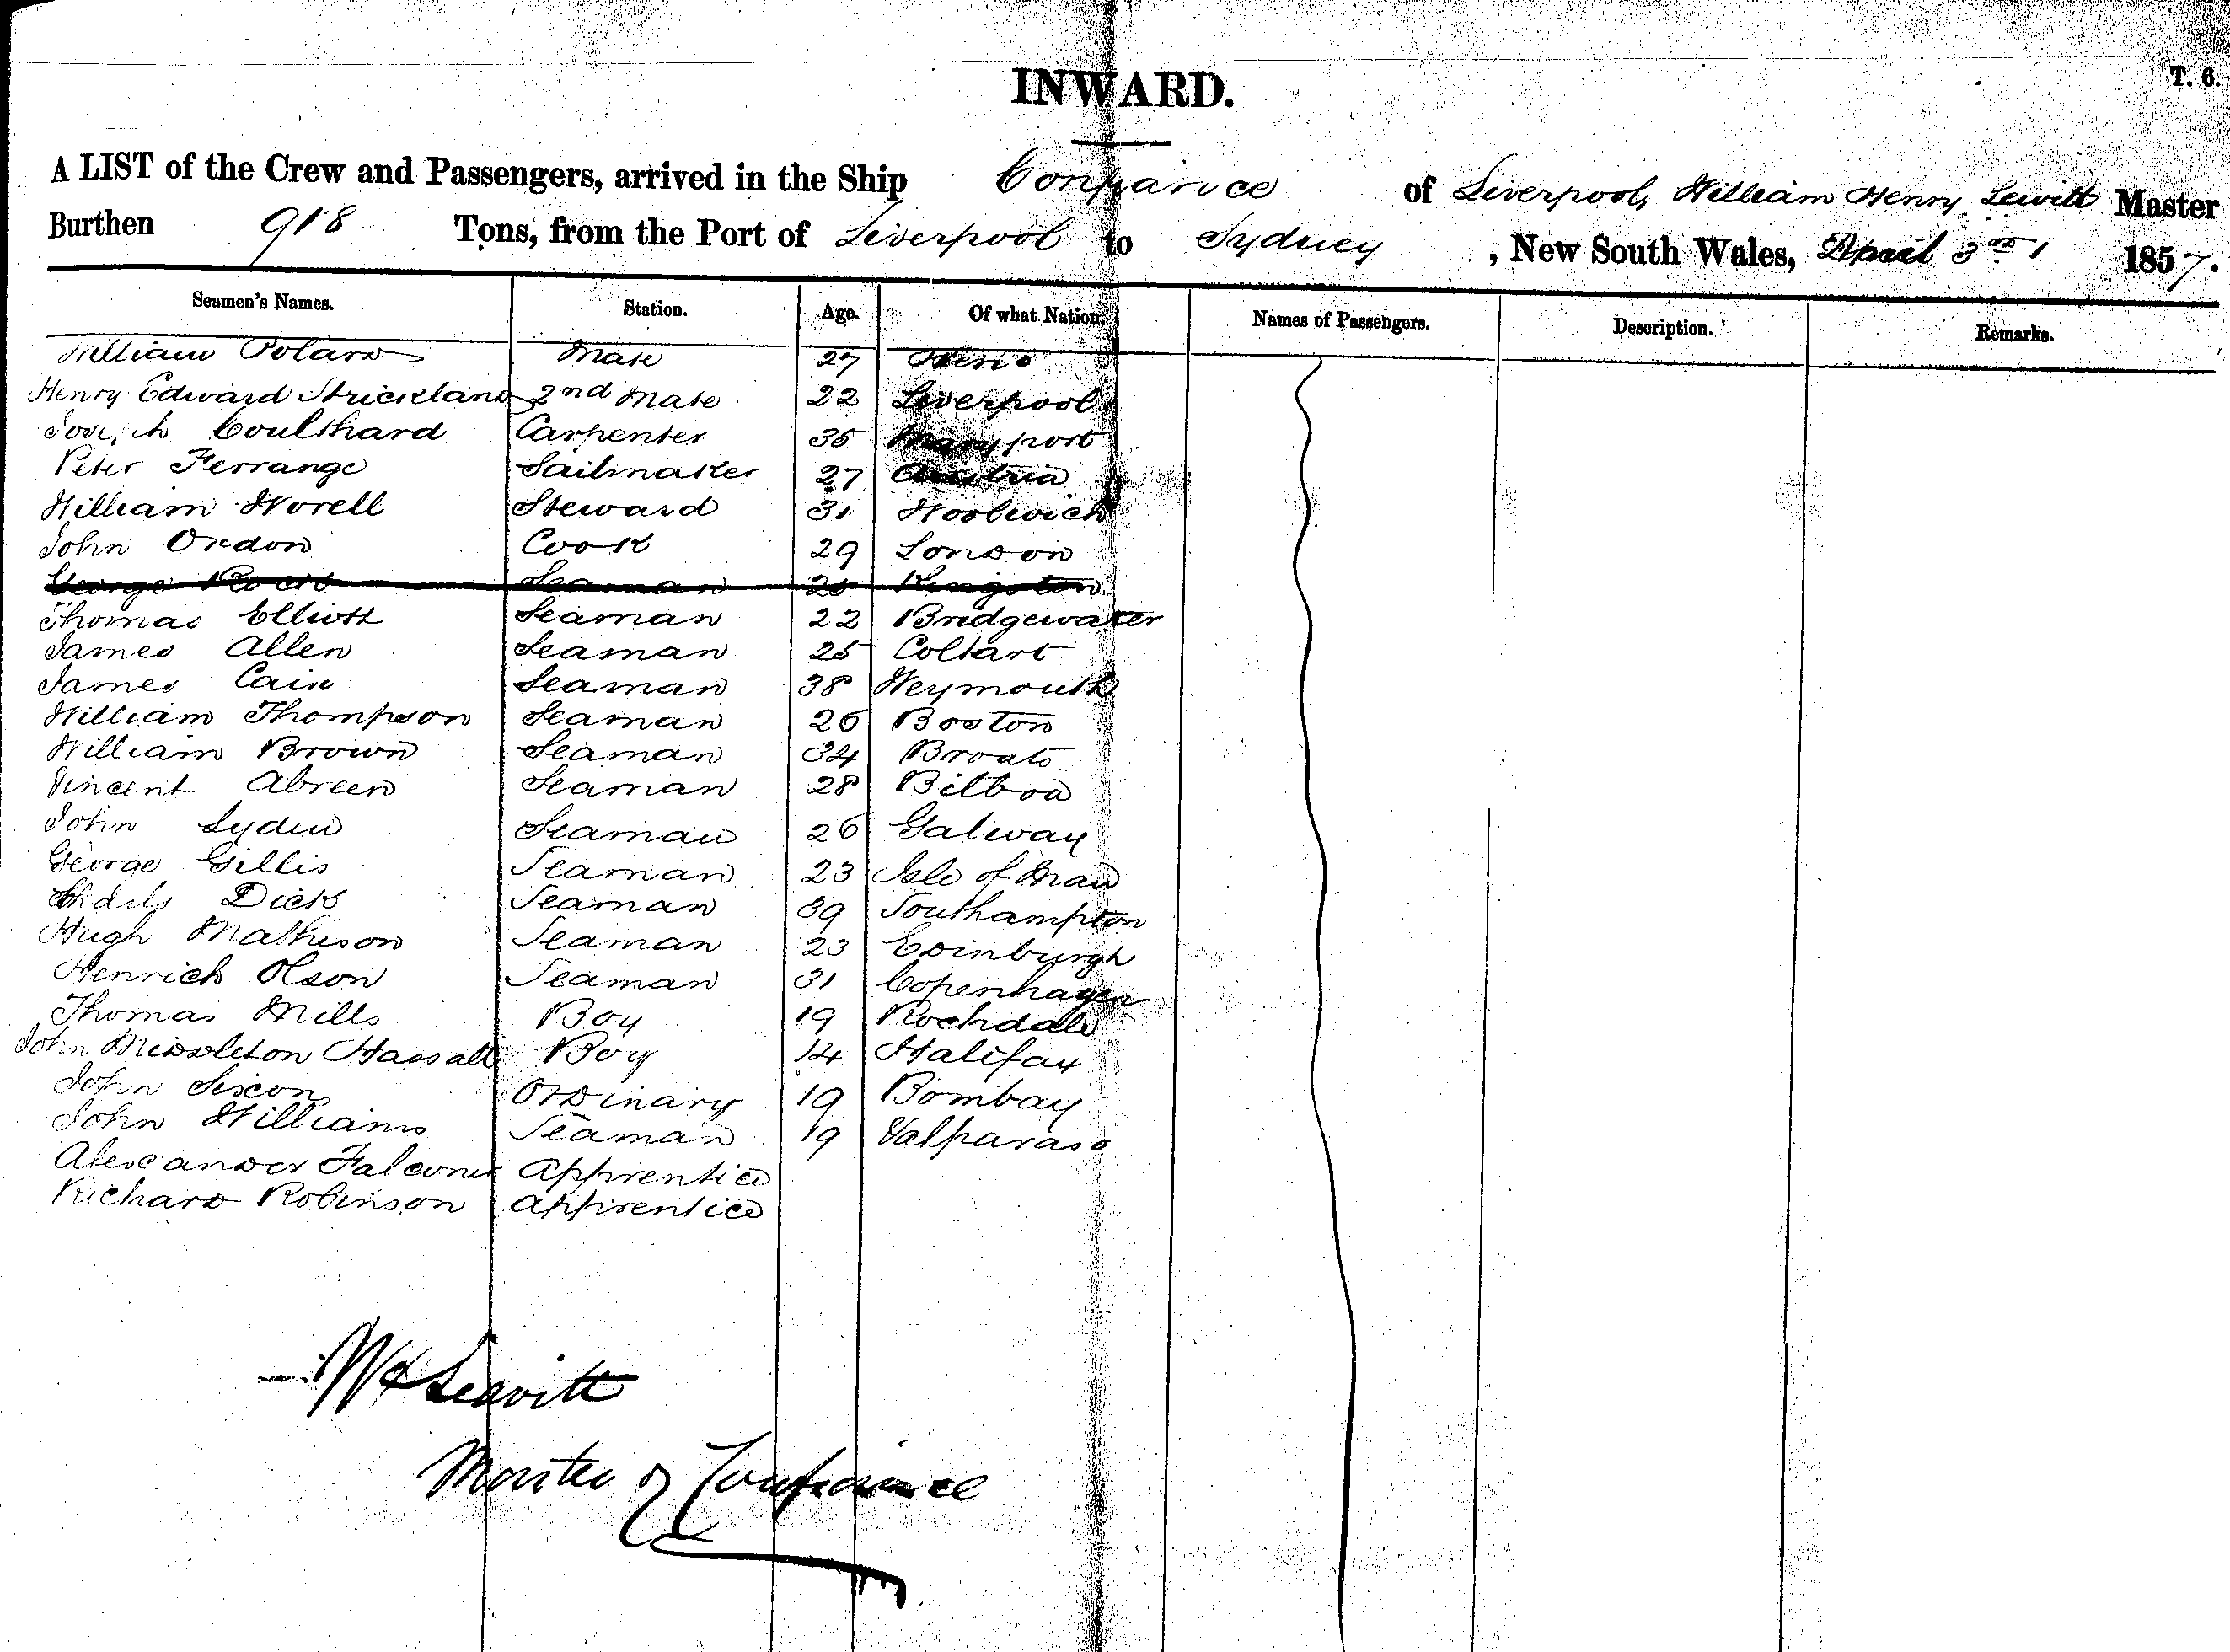 INWARD.
T. 6.
A LIST of the Crew and Passengers, arrived in the Ship Confiance of Liverpool, William Henry Lewitt Master
Burthen 918 Tons, from the Port of Liverpool to Sydney, New South Wales, April 3rd 1857.
Seamen's Names. Station. Age. Of what Nation. Names of Passengers. Description. Remarks.
William Mate 27
Henry Edward Strickland 2nd Mate 22 Liverpool
Joseph Coulthard Carpenter 35 Maryport
Peter Ferrange Sailmaker 27 Austria
William Worell Steward 31 Woolwich
John Ordon Cook 29 London
George Seaman 25 Kingston
Thomas Elliott Seaman 22 Bridgewater
James Allen Seaman 25 Coltart
James Cain Seaman 38 Weymouth
William Thompson Seaman 26 Boston
William Brown Seaman 34
Vincent Abreen Seaman 28 Bilboa
John Lyden Seaman 26 Galway
George Gillis Seaman 23 Isle of Man
Dick Seaman 39 Southampton
Hugh Mathison Seaman 23 Edinburgh
Henrich Olson Seaman 31 Copenhagen
Thomas Mills Boy 19 Rochdale
John Middleton Hassall Boy 14 Halifax
John Ordinary 19 Bombay
John Williams Seaman 19 Valparaso
Alexander Falconer Apprentice
Richard Robinson Apprentice
WH Lewitt
Master of Confiance